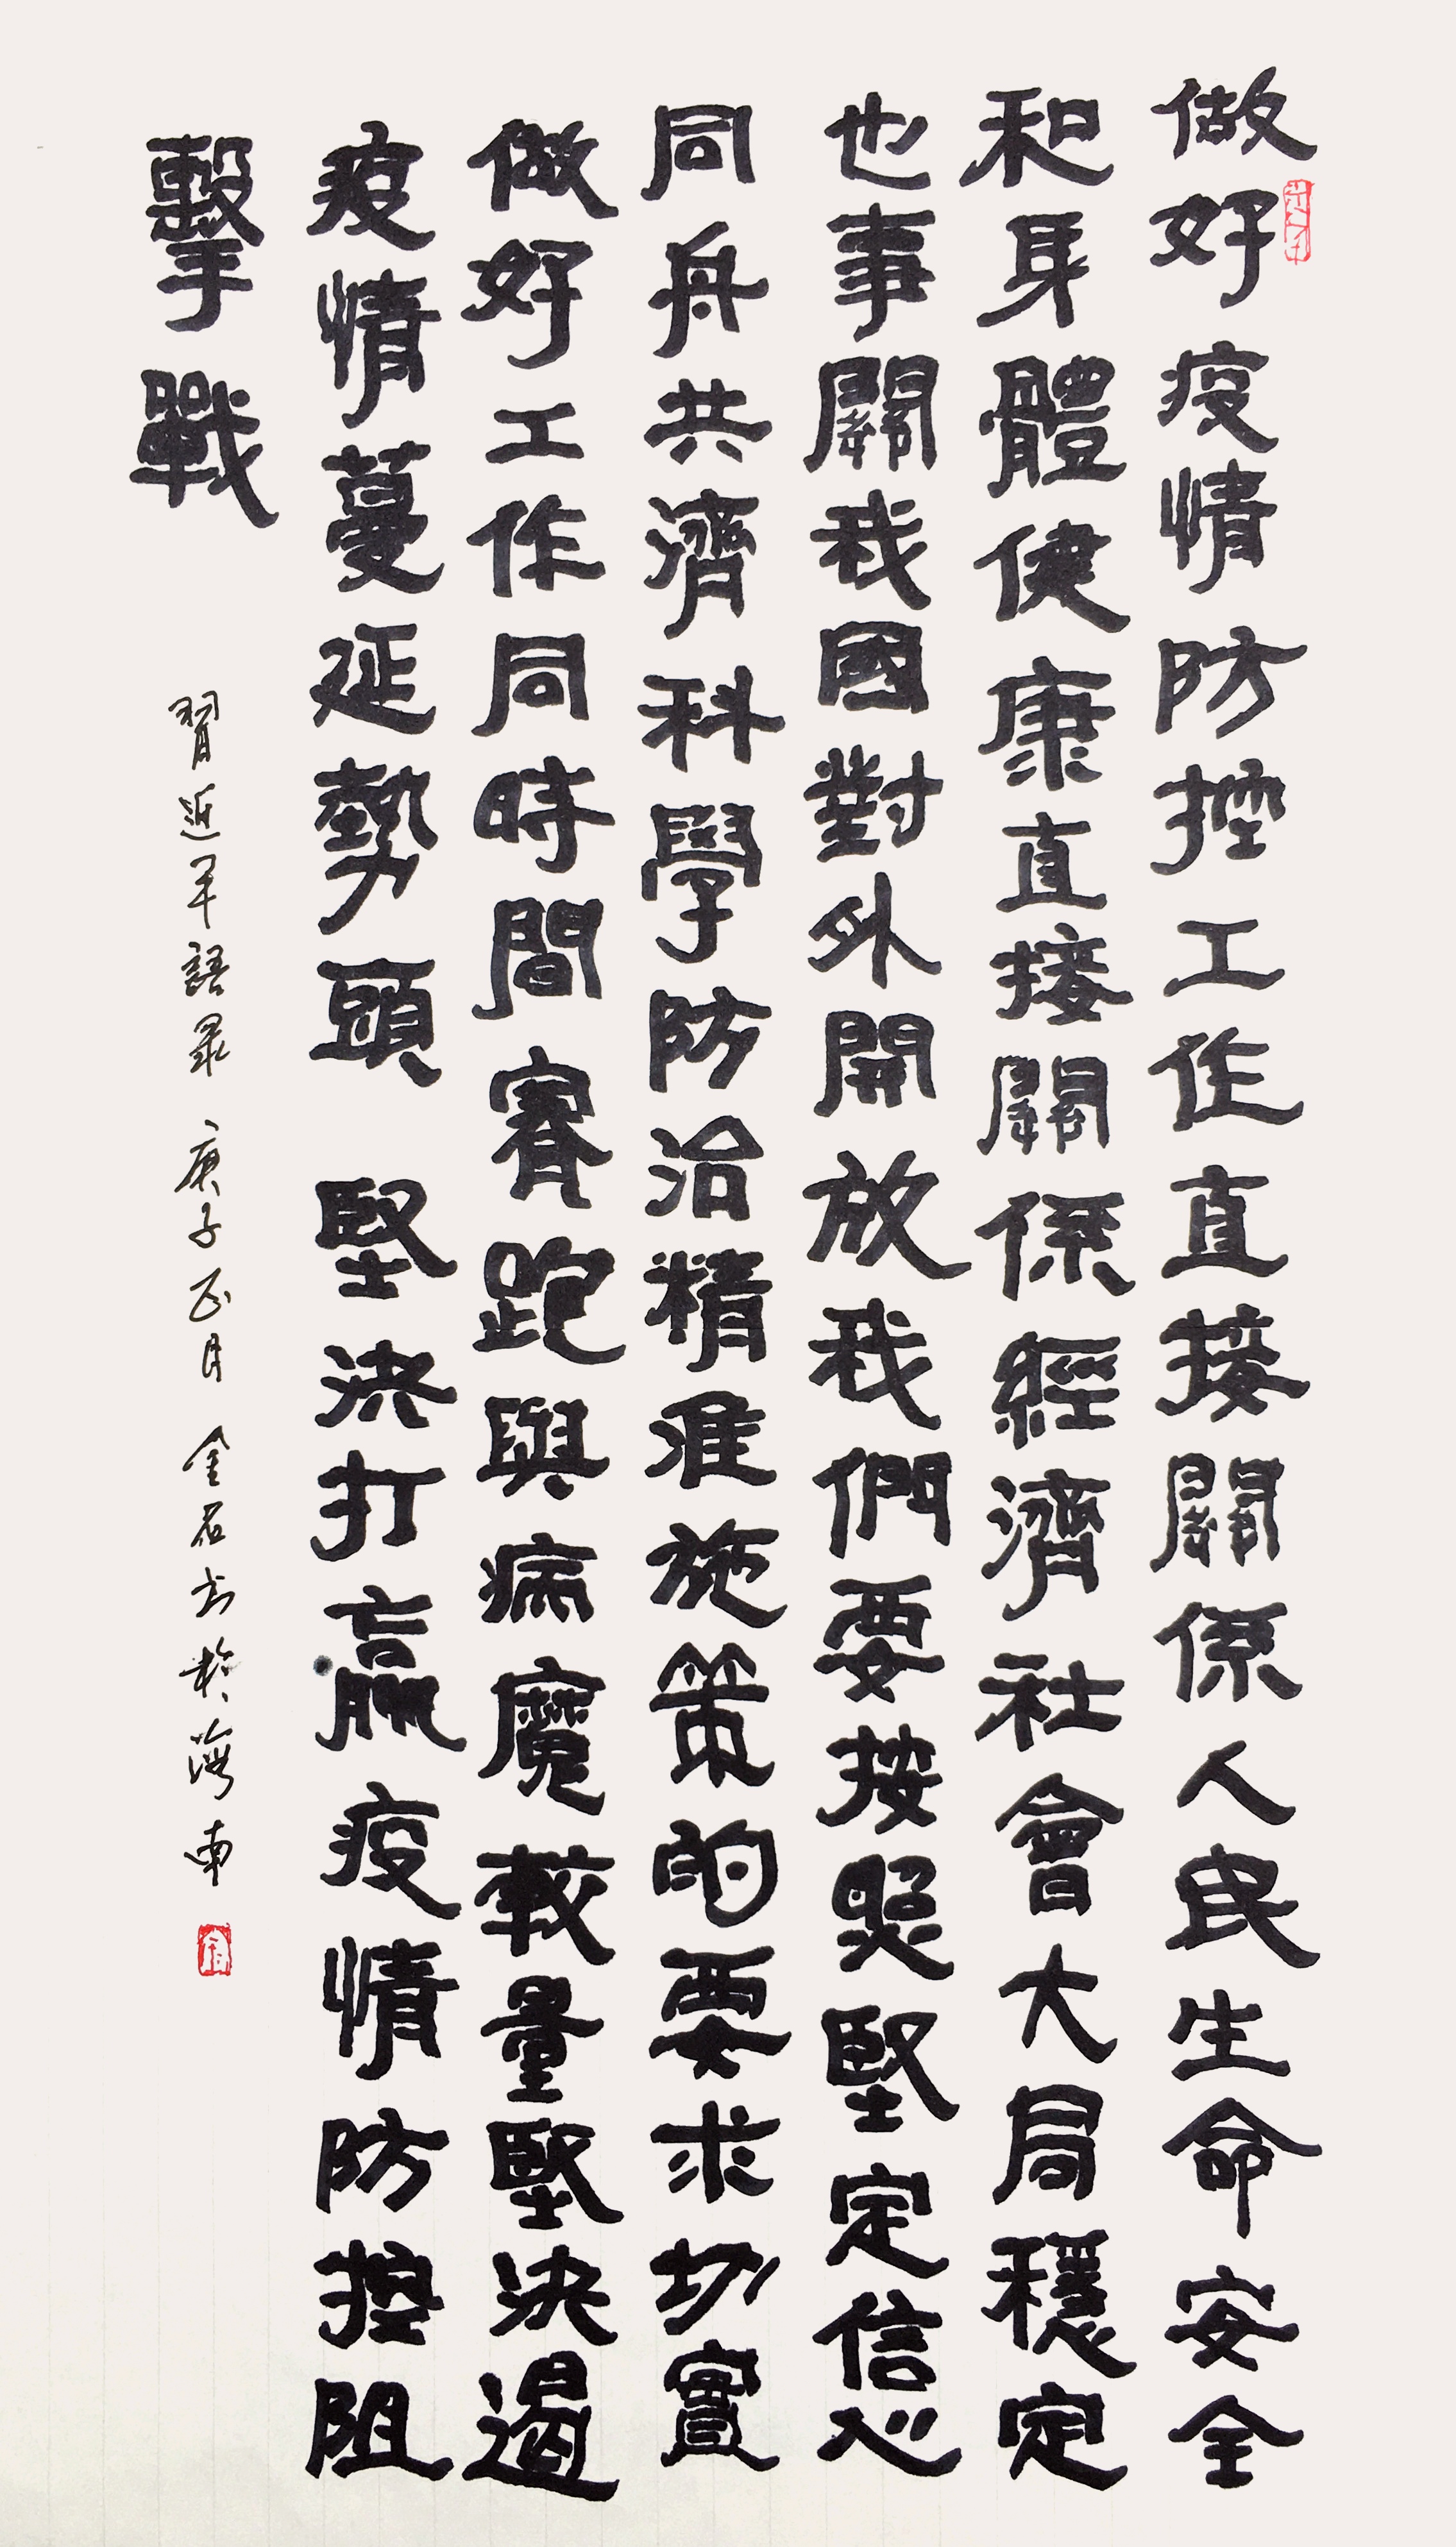 做好疫情防控工作直接關係人民生命安全
和身體健康直接關係經濟社會大局穩定
也事關我國對外開放我們要按照堅定信心
同舟共濟科學防治精准施策的要求切實
做好工作同時間賽跑與病魔較量堅決遏
疫情蔓延勢頭堅決打贏疫情防控阻
擊戰
習近平語录 庚子正月 金石书於海南